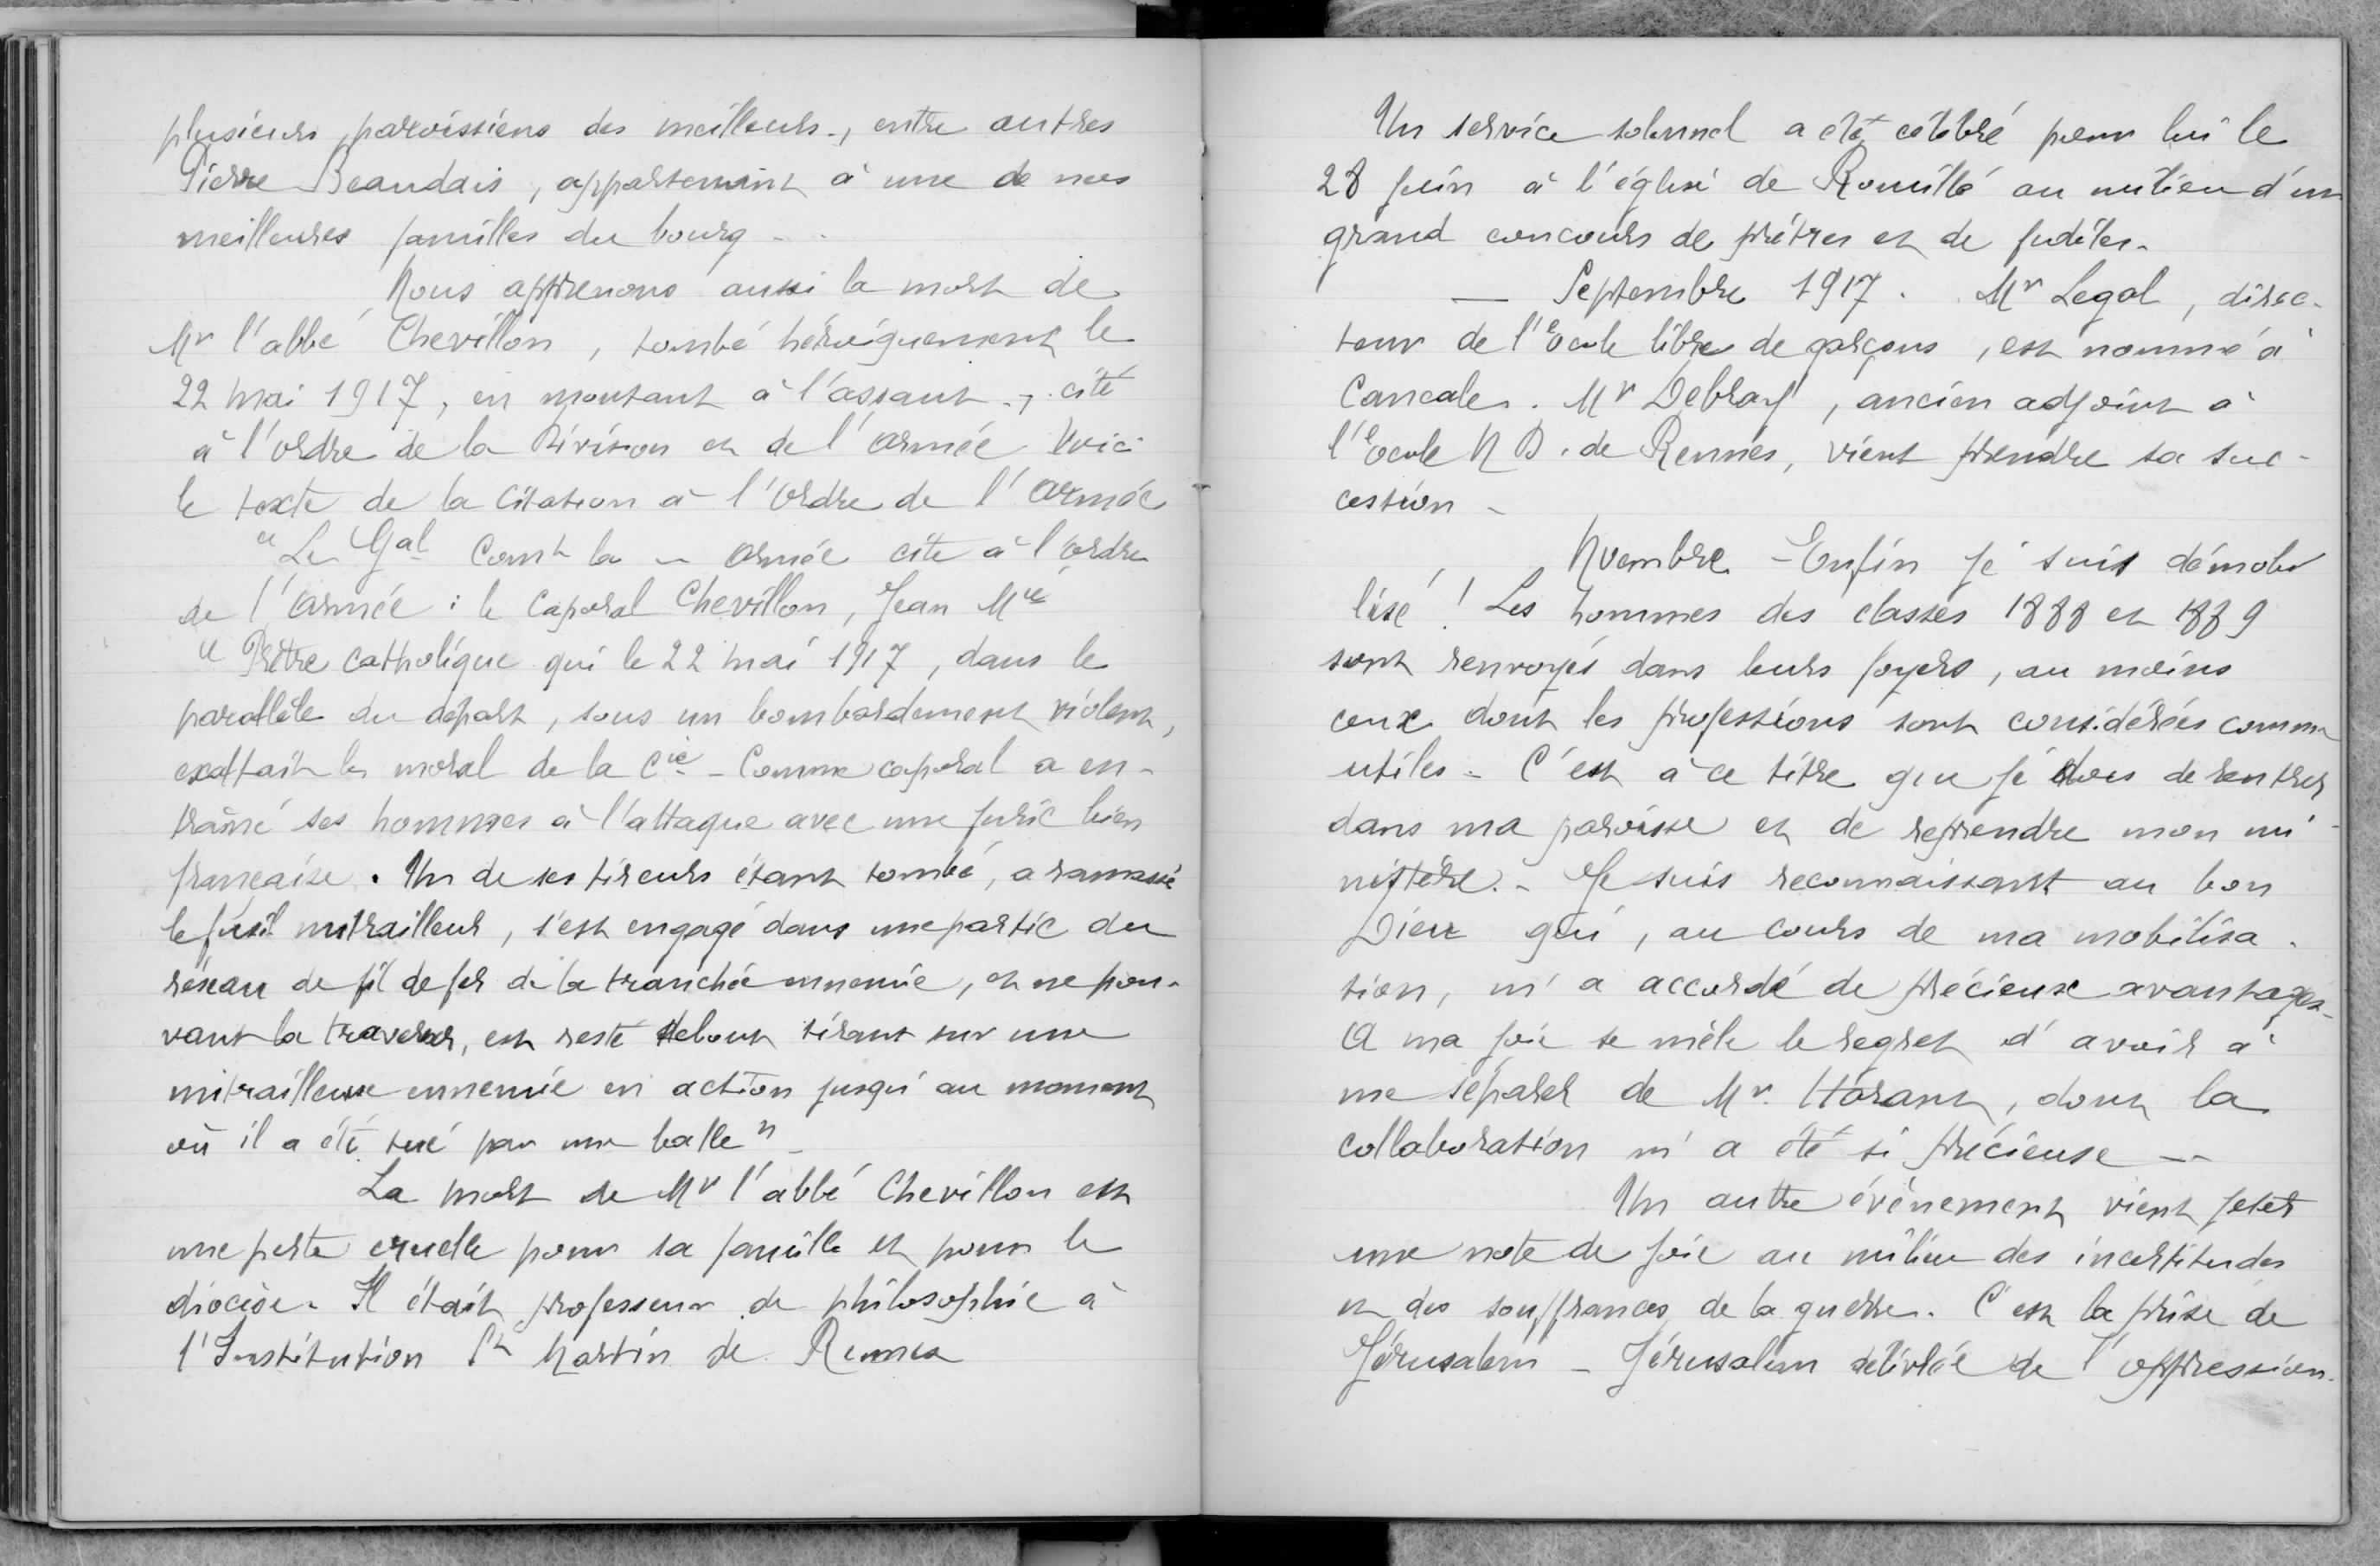 plusieurs paroissiens des meilleurs, entre autres
Pierre Beaudais, appartenant à une de nos
meilleures familles du bourg ..
Nous apprenons aussi la mort de
Mr l'abbé Chevillon, tombé héroïquement le
22 mai 1917, en montant à l'assaut, cité
à l'ordre de la Division et de l'armée. Voici
le texte de la citation à l'ordre de l'armée
" Le Gal Comt la ~ armée cite à l'ordre
de l'armée : le caporal Chevillon, Jean Mie
" Prêtre catholique qui le 22 mai 1917, dans le
parallèle du départ, sous un bombardement violent,
exaltait le moral de la Cie - Comme caporal a en-
traîné ses hommes à l'attaque avec une furie bien
française. Un de ses tireurs étant tombé, a ramassé
le fusil mitrailleur, s'est engagé dans une partie du
réseau de fil de fer de la tranchée ennemie, et ne pou-
vant la traverser, est resté debout tirant sur une
mitrailleuse ennemie en action jusqu'au moment
où il a été tué par une balle" -
La mort de Mr l'abbé Chevillon est
une perte cruelle pour sa famille et pour le
diocèse. Il était professeur de philosophie à
l'Institution St Martin de Rennes
Un service solennel a été célébré pour lui le
28 juin à l'église de Romillé au milieu d'un
grand concours de prêtres et de fidèles.
— Septembre 1917. Mr Legal, direc-
teur de l'Ecole libre de garçons, est nommé à
Cancale. Mr Debray, ancien adjoint à
l'Ecole N D. de Rennes, vient prendre sa suc-
cession -
Novembre - Enfin je suis démobi
lisé ! Les hommes des classes 1888 et 1889
sont renvoyés dans leurs foyers, au moins
ceux dont les professions sont considérées comme
utiles - C'est à ce titre que je dois de rentrer
dans ma paroisse et de reprendre mon mi-
nistère. - Je suis reconnaissant au bon
Dieu qui, au cours de ma mobilisa-
tion, m'a accordé de précieux avantages.
A ma joie se mêle le regret d'avoir à
me séparer de Mr. Harant, dont la
collaboration m'a été si précieuse —
Un autre évènement vient jeter
une note de joie au milieu des incertitudes
et des souffrances de la guerre. C'est la prise de
Jérusalem - Jérusalem délivrée de l'oppression